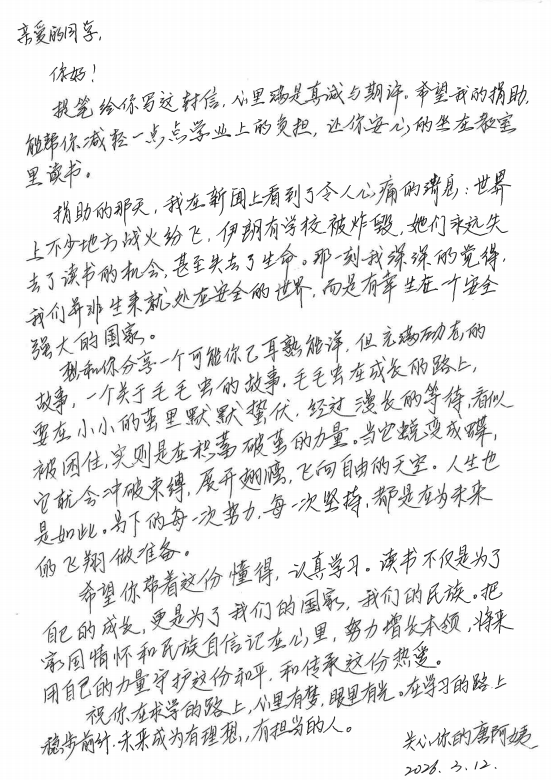 亲爱的同学,
你好!
提笔给你写这封信,心里满是真诚与期许。希望我的捐助,
能帮你减轻一点点学业上的负担,让你安心的坐在教室
里读书。
捐助的那天,我在新闻上看到了令人心痛的消息:世界
上不少地方战火纷飞,伊朗有学校被炸毁,她们永远失
去了读书的机会,甚至失去了生命。那一刻我深深的觉得,
我们并非生来就处在安全的世界,而是有幸生在一个安全
强大的国家。
想和你分享一个可能你已耳熟能详,但充满力量的
故事,一个关于毛毛虫的故事,毛毛虫在成长的路上,
要在小小的茧里默默蛰伏,经过漫长的等待,看似
被困住,实则是在积蓄破茧的力量。当它蜕变成蝶,
它就会冲破束缚,展开翅膀,飞向自由的天空。人生也
是如此。当下的每一次努力,每一次坚持,都是在为未来
的飞翔做准备。
希望你带着这份懂得,认真学习。读书不仅是为了
自己的成长,更是为了我们的国家,我们的民族。把
家国情怀和民族自信记在心里,努力增长本领,将来
用自己的力量守护这份和平,和传承这份热爱。
祝你在求学的路上,心里有梦,眼里有光。在学习的路上
稳步前行.未来成为有理想,有担当的人。
关心你的唐阿姨
2026.3.12.